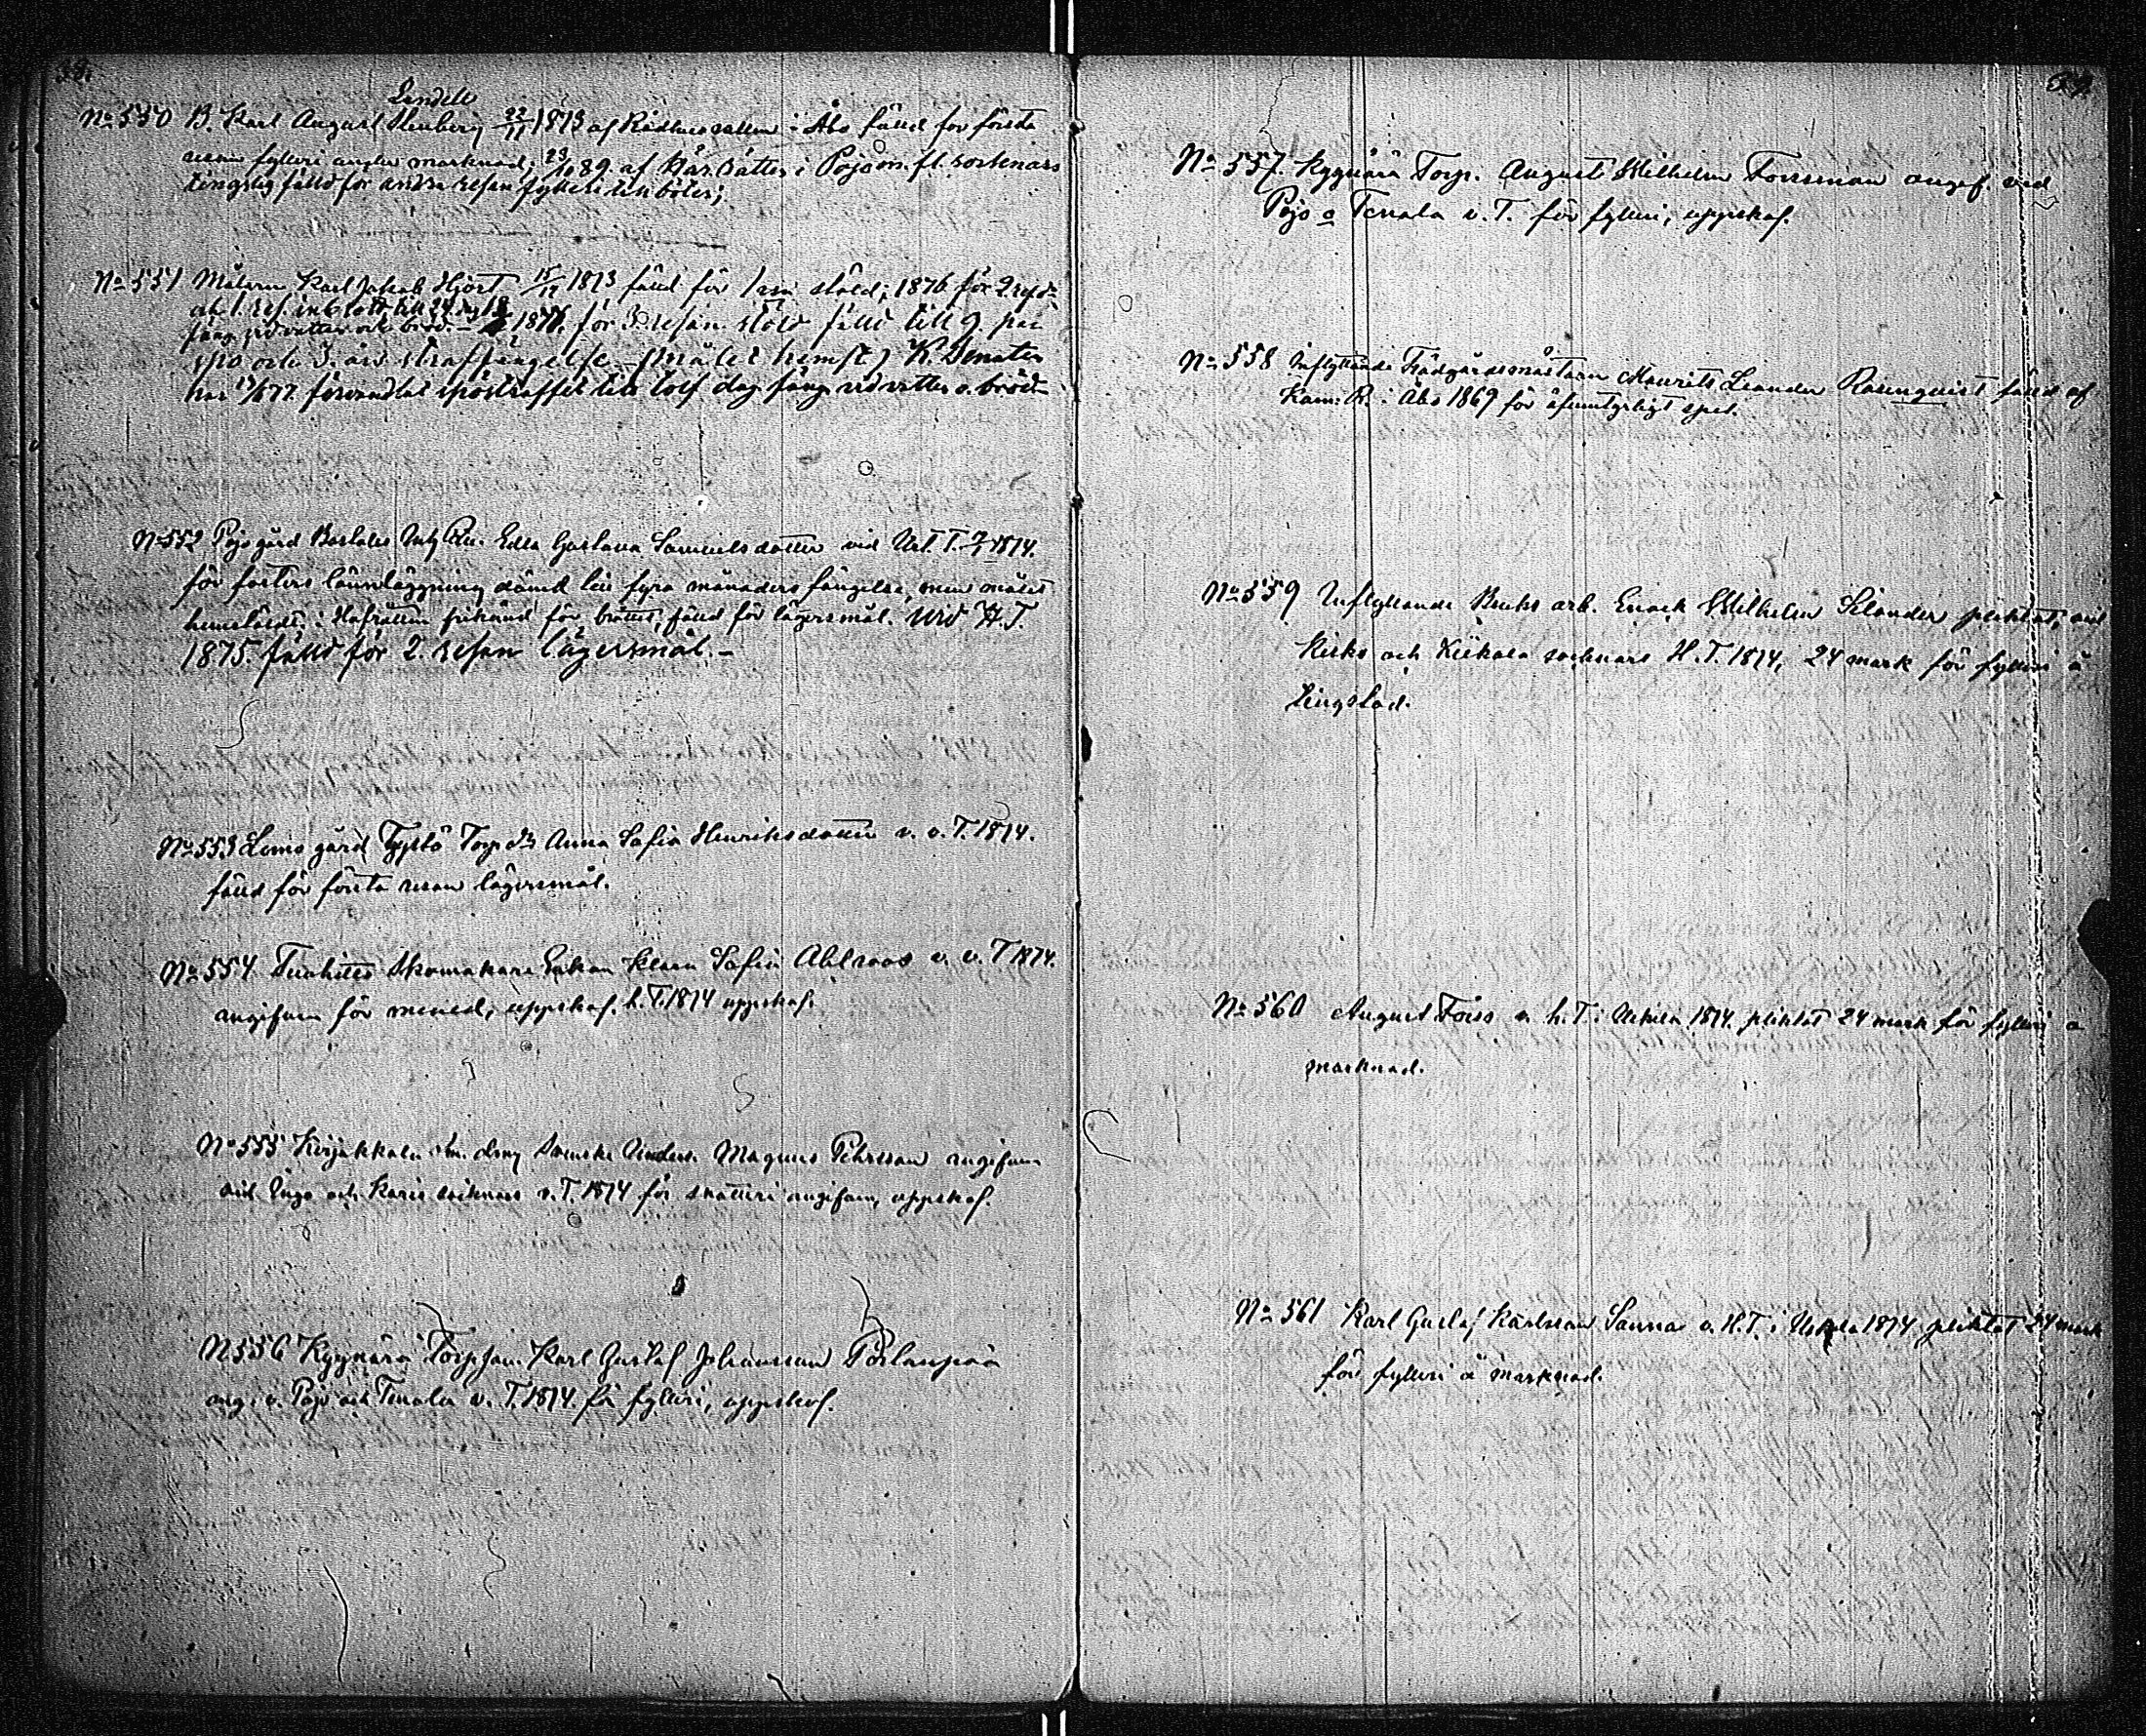 58.
Lindell
No 550 B. Karl August Stenberg 22/11 1873 af Rådhusrätten i Åbo fälld för första
resan fylleri under marknad; 23/10 89. af Här. Rätten i Pojo m. fl. socknars
tingslag fälld för andra resan fylleri till böter;
No 551 Målarn Karl Jakob Hjort 15/12 1873 fälld för 1 resa stöld; 1876 för 2 res.
och 1. res. inbrott, till 24 dag
fäng. vid vatten och bröd. – 1876, för 3 resan stöld fälld till 9. par
spö och 3. års straffängelse (målet hemst.) K. Senaten
har 13/6 77. förvandlat spöstraffet till tolf dag. fäng. vid vatten o. bröd
No 552 Pojogård Edla Gustava Samuelsdotter vid Urt. T. 7/1 1874.
för fosters lönnläggning dömd till fyra månaders fängelse, men målet
hemstäldt; i Hofrätten frikänd för brottet, fälld för lägersmål. Wid H. T.
1875. fälld för 2. resan lägersmål. –
No 553 Lemo gård Tyttö Torp. dr Anna Sofia Henriksdotter v. v. T. 1874.
fälld för första resan lägersmål.
No 554 Skomakare Enkan Klara Sofia Ahlroos v. v. T 1874.
angifven för mened, uppskof. h. T. 1874 uppskof.
No 555 Koijakkala dräng Svenske Unders. Magnus Pehrsson angifven
vid Ingo och Karis socknars v. T. 1874 för snatteri angifven, uppskof.
No 556 Kygnärä Torp. son. Karl Gustaf Johansson
ang. v. Pojo och Tenala v. T. 1874. för fylleri, uppskof.
59.
No 557. Kygnärä Torp. August Wilhelm Forssman angif. vid
Pojo o Tenala v. T. för fylleri, uppskof.
No 558 Inflyttande Trädgårdsmästaren Maurits Leander Rosenqvist fälld af
Käm: R. i Åbo 1869 för äfventyrligt spel.
No 559 Inflyttande Bruks arb. Enok Wilhelm Selander pliktat, vid
Kisko och Kiikala socknars H. T. 1874, 24 mark för fylleri å
Tingstad.
No 560 August Forss v. h. T. i Uskela 1874. pliktat 24 mark för fylleri å
marknad.
No 561 Karl Gustaf Karlsson Sanna v. H. T. i Uskela 1874 pliktat 24 mark
för fylleri å marknad.